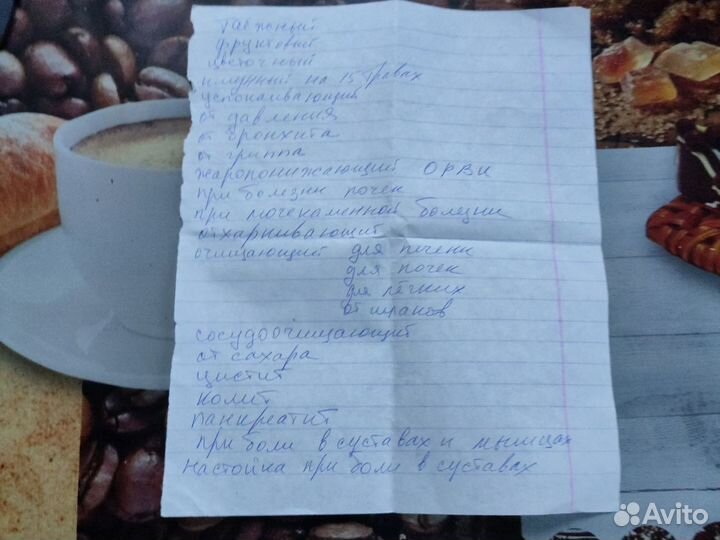 фруктовый
цветочный
иммунный на 15 травах
успокаивающий
от давления
от бронхита
от гриппа
жаропонижающий ОРВИ
при болезни почек
при мочекаменной болезни
отхаркивающий
очищающий для печени
для почек
для лёгких
от шлаков
сосудоочищающий
от сахара
цистит
колит
панкреатит
при боли в суставах и мышцах
настойка при боли в суставах
Avito